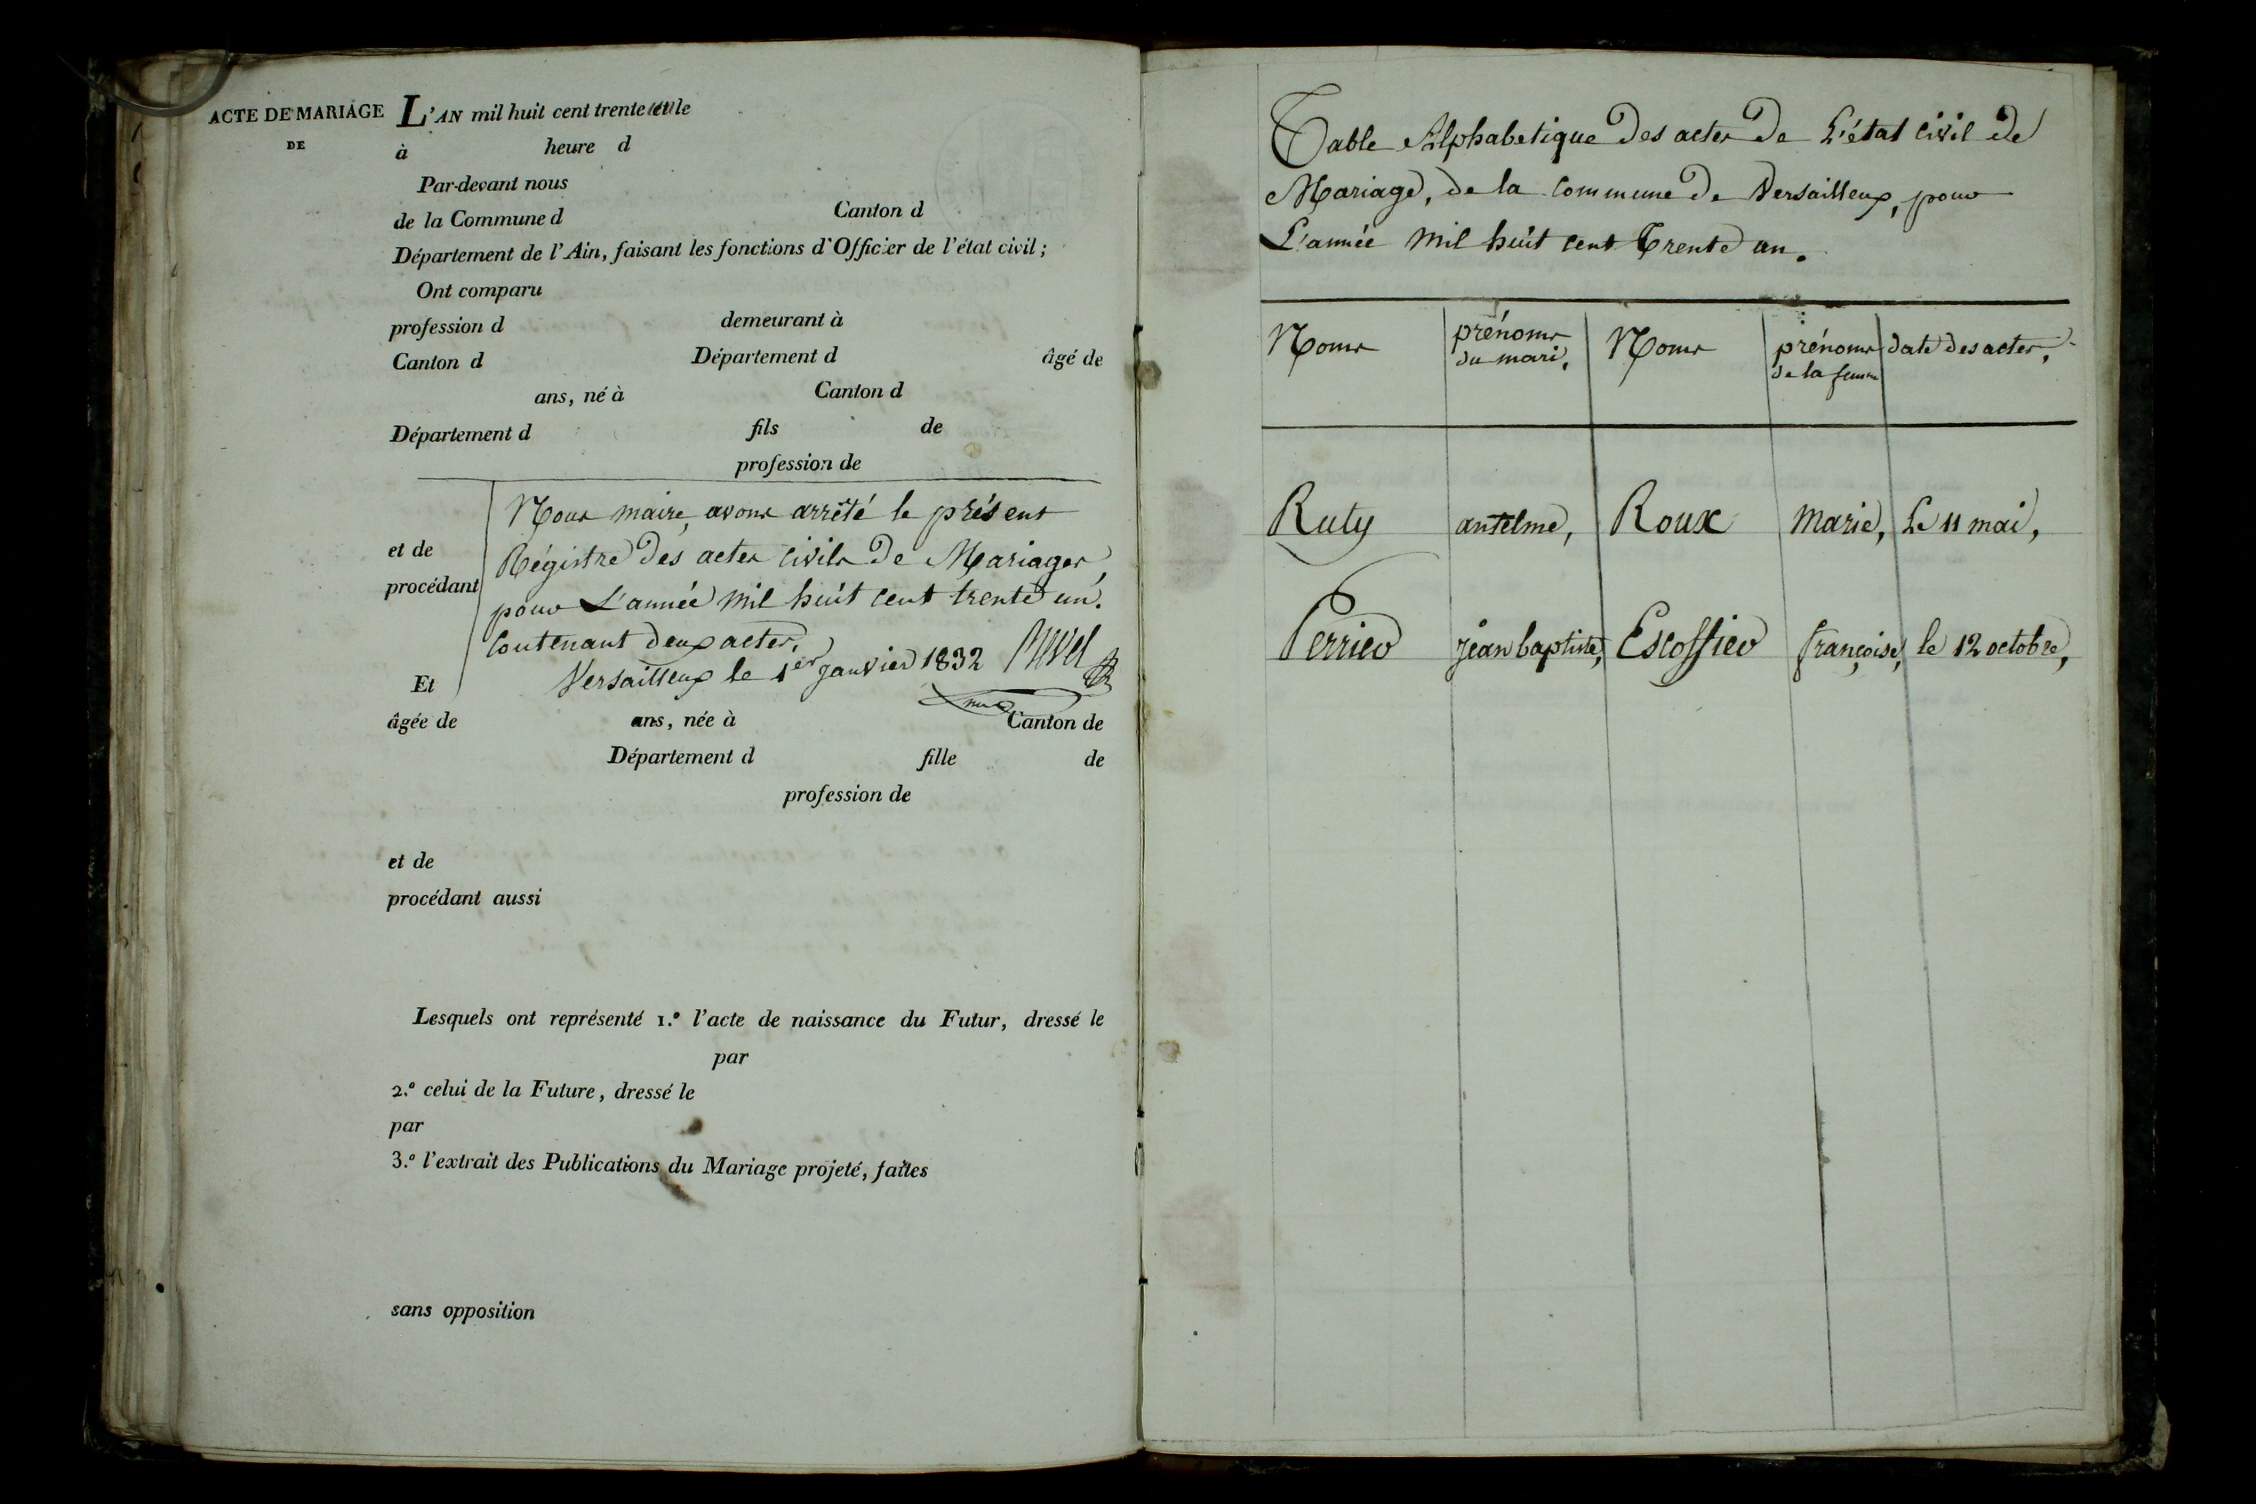 ACTE DE MARIAGE
DE
L'AN mil huit cent trente et un le
à heure d
Par-devant nous
de la Commune d Canton d
Département de l'Ain, faisant les fonctions d'Officier de l'état civil;
Ont comparu
profession d demeurant à
Canton d Département d âgé de
ans, né à Canton d
Département d fils de
profession de
Nous maire, avons arrêté le présent
et de
Régistre des actes civils de Mariages,
procédant
pour L'année mil huit cent trente un.
Contenant deux actes.
Versailleux le 1er janvier 1832
Et
âgée de ans, née à Canton de
Département d fille de
profession de
et de
procédant aussi
Lesquels ont représenté 1.º l'acte de naissance du Futur, dressé le
par
2.º celui de la Future, dressé le
par
3.º l'extrait des Publications du Mariage projeté, faites
sans opposition
Table Alphabetique des actes de L'état civil de
Mariage, de la commune de Versailleux, pour
L'année mil huit cent Trente un.
Noms prénoms du mari, Noms prénoms de la femme date des actes,
Ruty antelme, Roux Marie, Le 11 mai,
Perrier jean baptiste, Escoffier françoise, le 12 octobre,